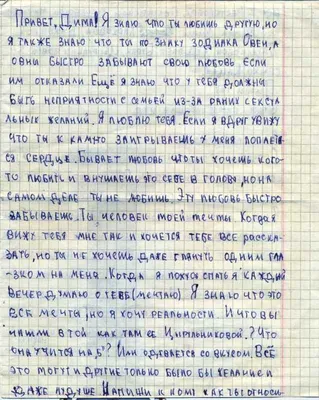 Привет, Дима! Я знаю что ты любишь другую, но
я также знаю что ты по знаку зодиака Овен, а
овны быстро забывают свою любовь если
им отказали Ещё я знаю что у тебя должны
быть неприятности с семьей из-за раних сексуа-
льных желаний. Я люблю тебя Если я вдруг увижу
что ты к камно заигрываешь у меня лопается
ся сердце. Бывает любовь что ты хочешь кого-
то любить и внушаешь это себе в голову, но на
самом деле ты не любишь. Эту любовь быстро
забываешь. Ты человек моей мечты Когда я
вижу тебя мне так и хочется тебе всё расска-
зать, но ты не хочешь даже глянуть одним гла-
зком на меня. Когда я ложусь спать я каждый
вечер думаю о тебе (мечтаю) Я знаю что это
всё мечты, но я хочу реальности И что вы
нашли в той как там её Цирульниковой? Что
она учится на 5? Или одевается со вкусом. Всё
это могут и другие только было бы желание и
даже лучше Напиши к кому как ты относи-